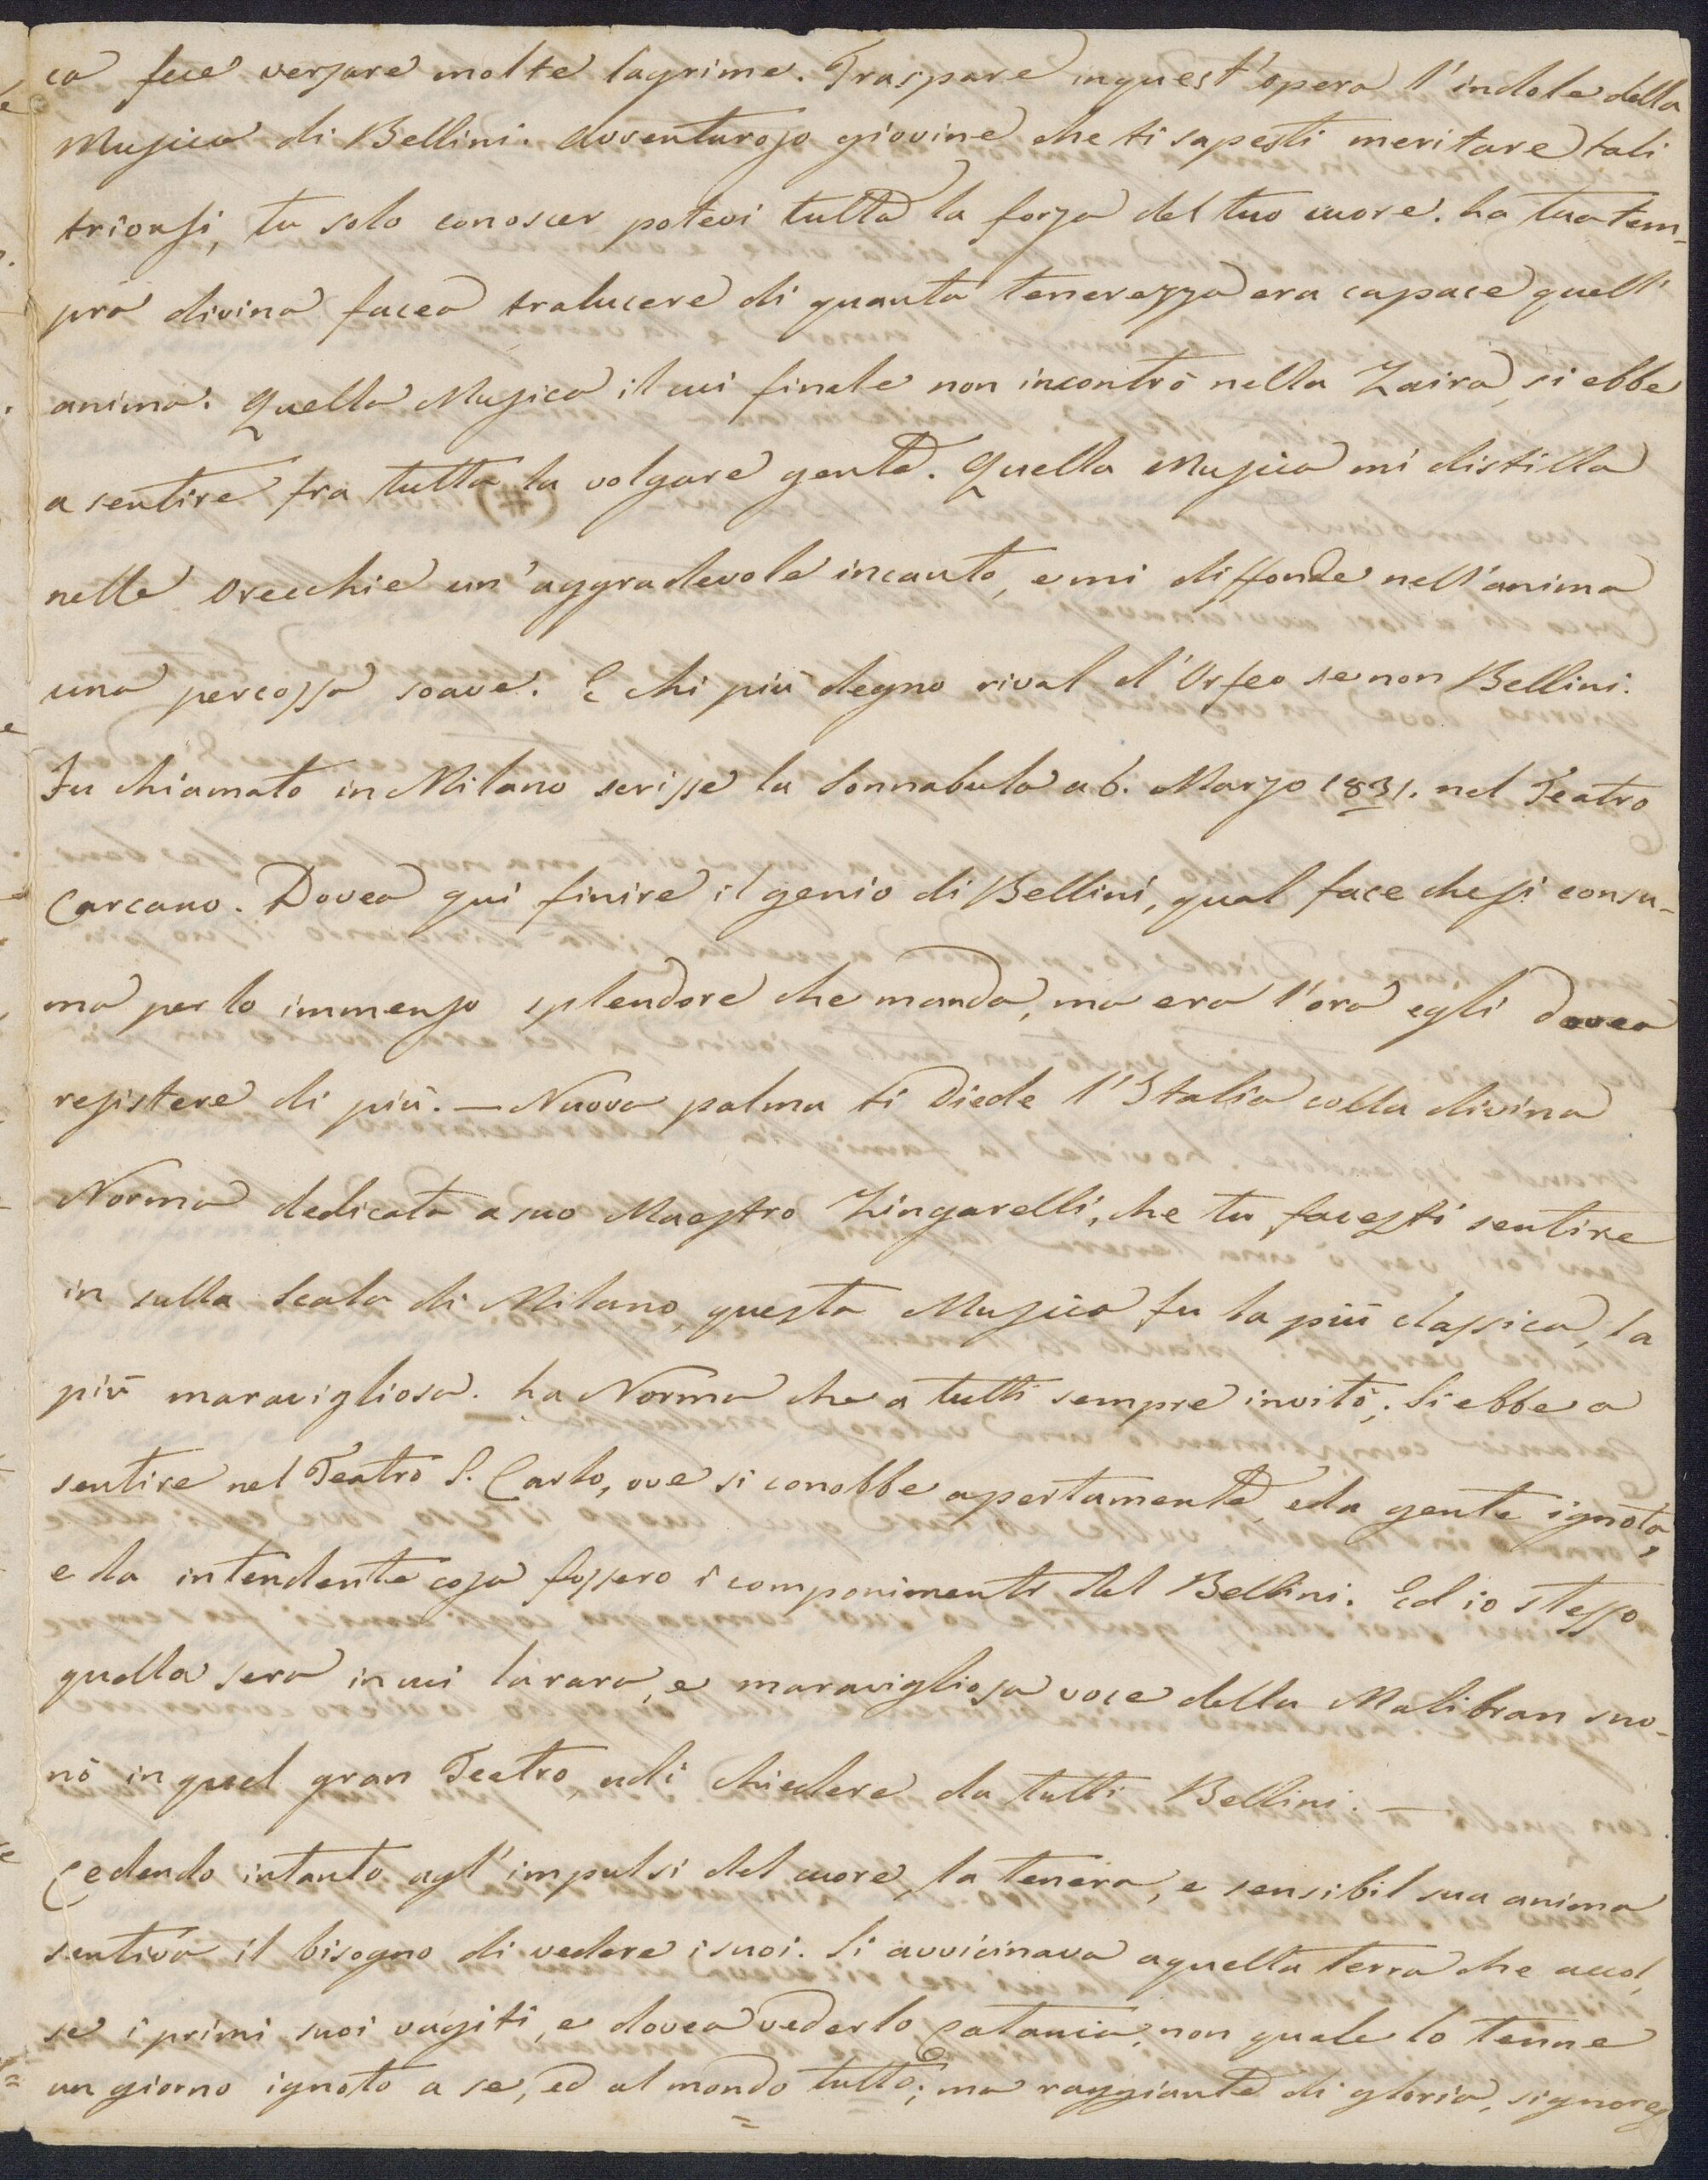 ca fece versare molte lagrime. Traspare inquest'opera l'indole della
Musica di Bellini. Avventuroso giovine che ti sapesti meritare tali
trionfi, tu solo conoscer potevi tutta la forza del tuo cuore. La tua tem-
pra divina facea tralucere di quanta tenerezza era capace quell'
anima. Quella Musica il cui finale non incontrò nella Zaira, si ebbe
a sentire fra tutta la volgare gente. Quella Musica mi distilla
nelle Orecchie un'aggradevole incanto, e mi diffonde nell'anima
una percossa soave. E chi più degno rival d'Orfeo se non Bellini.
Fu chiamato in Milano scrisse la Sonnabula a 6. Marzo 1831. nel Teatro
Carcano. Dovea qui finire il genio di Bellini, qual face che si consu-
ma per lo immenso splendore che manda, ma era l'ora egli dovea
resistere di più. — Nuova palma ti diede l'Italia colla divina
Norma dedicata a suo Maestro Zingarelli, che tu facesti sentire
in sulla Scala di Milano, questa Musica fu la più classica, la
più maravigliosa. La Norma che a tutti sempre invitò; Si ebbe a
sentire nel Teatro S. Carlo, ove si conobbe apertamente, e da gente ignota,
e da intendente cosa fossero i componimenti del Bellini. Ed io stesso
quella sera in cui la rara, e maravigliosa voce della Malibran suo-
nò in quel gran Teatro, udi chiedere da tutti Bellini. —
Cedendo intanto agl'impulsi del cuore, la tenera, e sensibil sua anima
sentiva il bisogno di vedere i suoi. Si avvicinava a quella terra che accol,
se i primi suoi vagiti, e dovea vederlo Catania, non quale lo tenne
un giorno ignoto a se, ed al mondo tutto; ma raggiante di gloria, signoreg